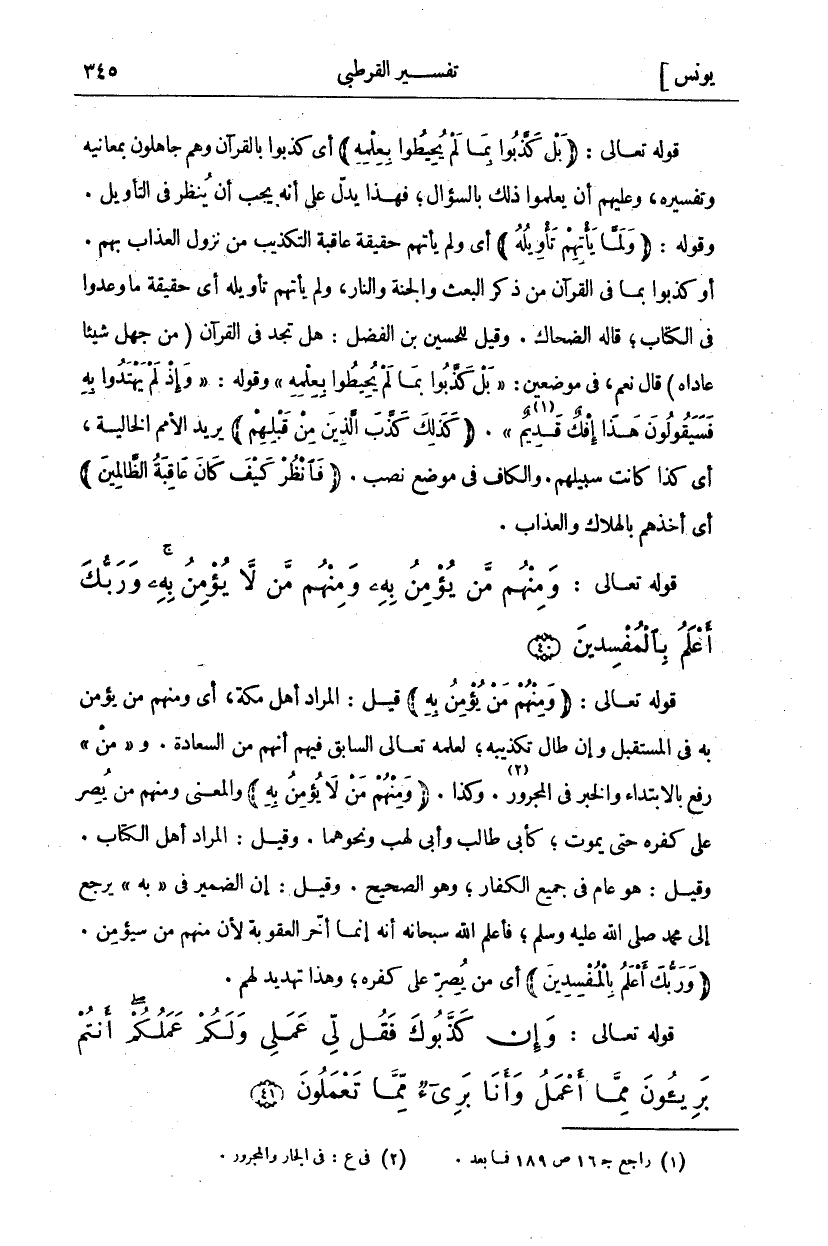 يونس ] تفســـير القرطبي ٣٤٥
قوله تعـالى : ﴿ بَلْ كَذَّبُوا بِمَـا لَمْ يُحِيطُوا بِعِلْمِهِ ﴾ أى كذبوا بالقرآن وهم جاهلون بمعانيه
وتفسيره، وعليهم أن يعلموا ذلك بالسؤال؛ فهـذا يدلّ على أنه يجب أن يُنظر فى التأويل .
وقوله : ﴿ وَلَمَّـا يَأْتِهِمْ تَأْوِيلُهُ ﴾ أى ولم يأتهم حقيقة عاقبة التكذيب من نزول العذاب بهم .
أو كذبوا بمـا فى القرآن من ذكر البعث والجنة والنار، ولم يأتهم تأويله أى حقيقة ما وعدوا
فى الكتاب؛ قاله الضحاك . وقيل للحسين بن الفضل : هل تجد فى القرآن ( من جهل شيئا
عاداه ) قال نعم، فى موضعين : « بَلْ كَذَّبُوا بِمَـا لَمْ يُحِيطُوا بِعِلْمِهِ » وقوله : « وَإِذْ لَمْ يَهْتَدُوا بِهِ
فَسَيَقُولُونَ هَـذَا إِفْكٌ قَـدِيمٌ(١) » . ﴿ كَذَلِكَ كَذَّبَ الَّذِينَ مِنْ قَبْلِهِمْ ﴾ يريد الأمم الخاليـة ،
أى كذا كانت سبيلهم. والكاف فى موضع نصب . ﴿ فَٱنْظُرْ كَيْفَ كَانَ عَاقِبَةُ الظَّالِمِينَ ﴾
أى أخذهم بالهلاك والعذاب .
قوله تعـالى : وَمِنْهُم مَّن يُؤْمِنُ بِهِۦ وَمِنْهُم مَّن لَّا يُؤْمِنُ بِهِۦۚ وَرَبُّكَ
أَعْلَمُ بِٱلْمُفْسِدِينَ ﴿٤٠﴾
قوله تعـالى : ﴿ وَمِنْهُمْ مَنْ يُؤْمِنُ بِهِ ﴾ قيـل : المراد أهل مكة، أى ومنهم من يؤمن
به فى المستقبل وإن طال تكذيبه؛ لعلمه تعالى السابق فيهم أنهم من السعادة . و « منْ »
رفع بالابتداء والخبر فى المجرور(٢) . وكذا . ﴿ وَمِنْهُمْ مَنْ لَا يُؤْمِنُ بِهِ ﴾ والمعنى ومنهم من يُصر
على كفره حتى يموت ؛ كأبى طالب وأبى لهب ونحوهما . وقيـل : المراد أهل الكتاب .
وقيـل : هو عام فى جميع الكفار ؛ وهو الصحيح . وقيـل : إن الضمير فى « به » يرجع
إلى محمد صلى الله عليه وسلم ؛ فأعلم الله سبحانه أنه إنمـا أخّر العقوبة لأن منهم من سيؤمن .
﴿ وَرَبُّكَ أَعْلَمُ بِالْمُفْسِدِينَ ﴾ أى من يُصِرّ على كفره ؛ وهذا تهديد لهم .
قوله تعـالى : وَإِن كَذَّبُوكَ فَقُـل لِّى عَمَـلِى وَلَكُمْ عَمَلُكُمْۖ أَنتُم
بَرِيٓـُٔونَ مِمَّـا أَعْمَلُ وَأَنَا بَرِىٓءٌ مِّمَّـا تَعْمَلُونَ ﴿٤١﴾
(١) راجع جـ ١٦ ص ١٨٩ فـا بعد . (٢) فى ع : فى الجار والمجرور .